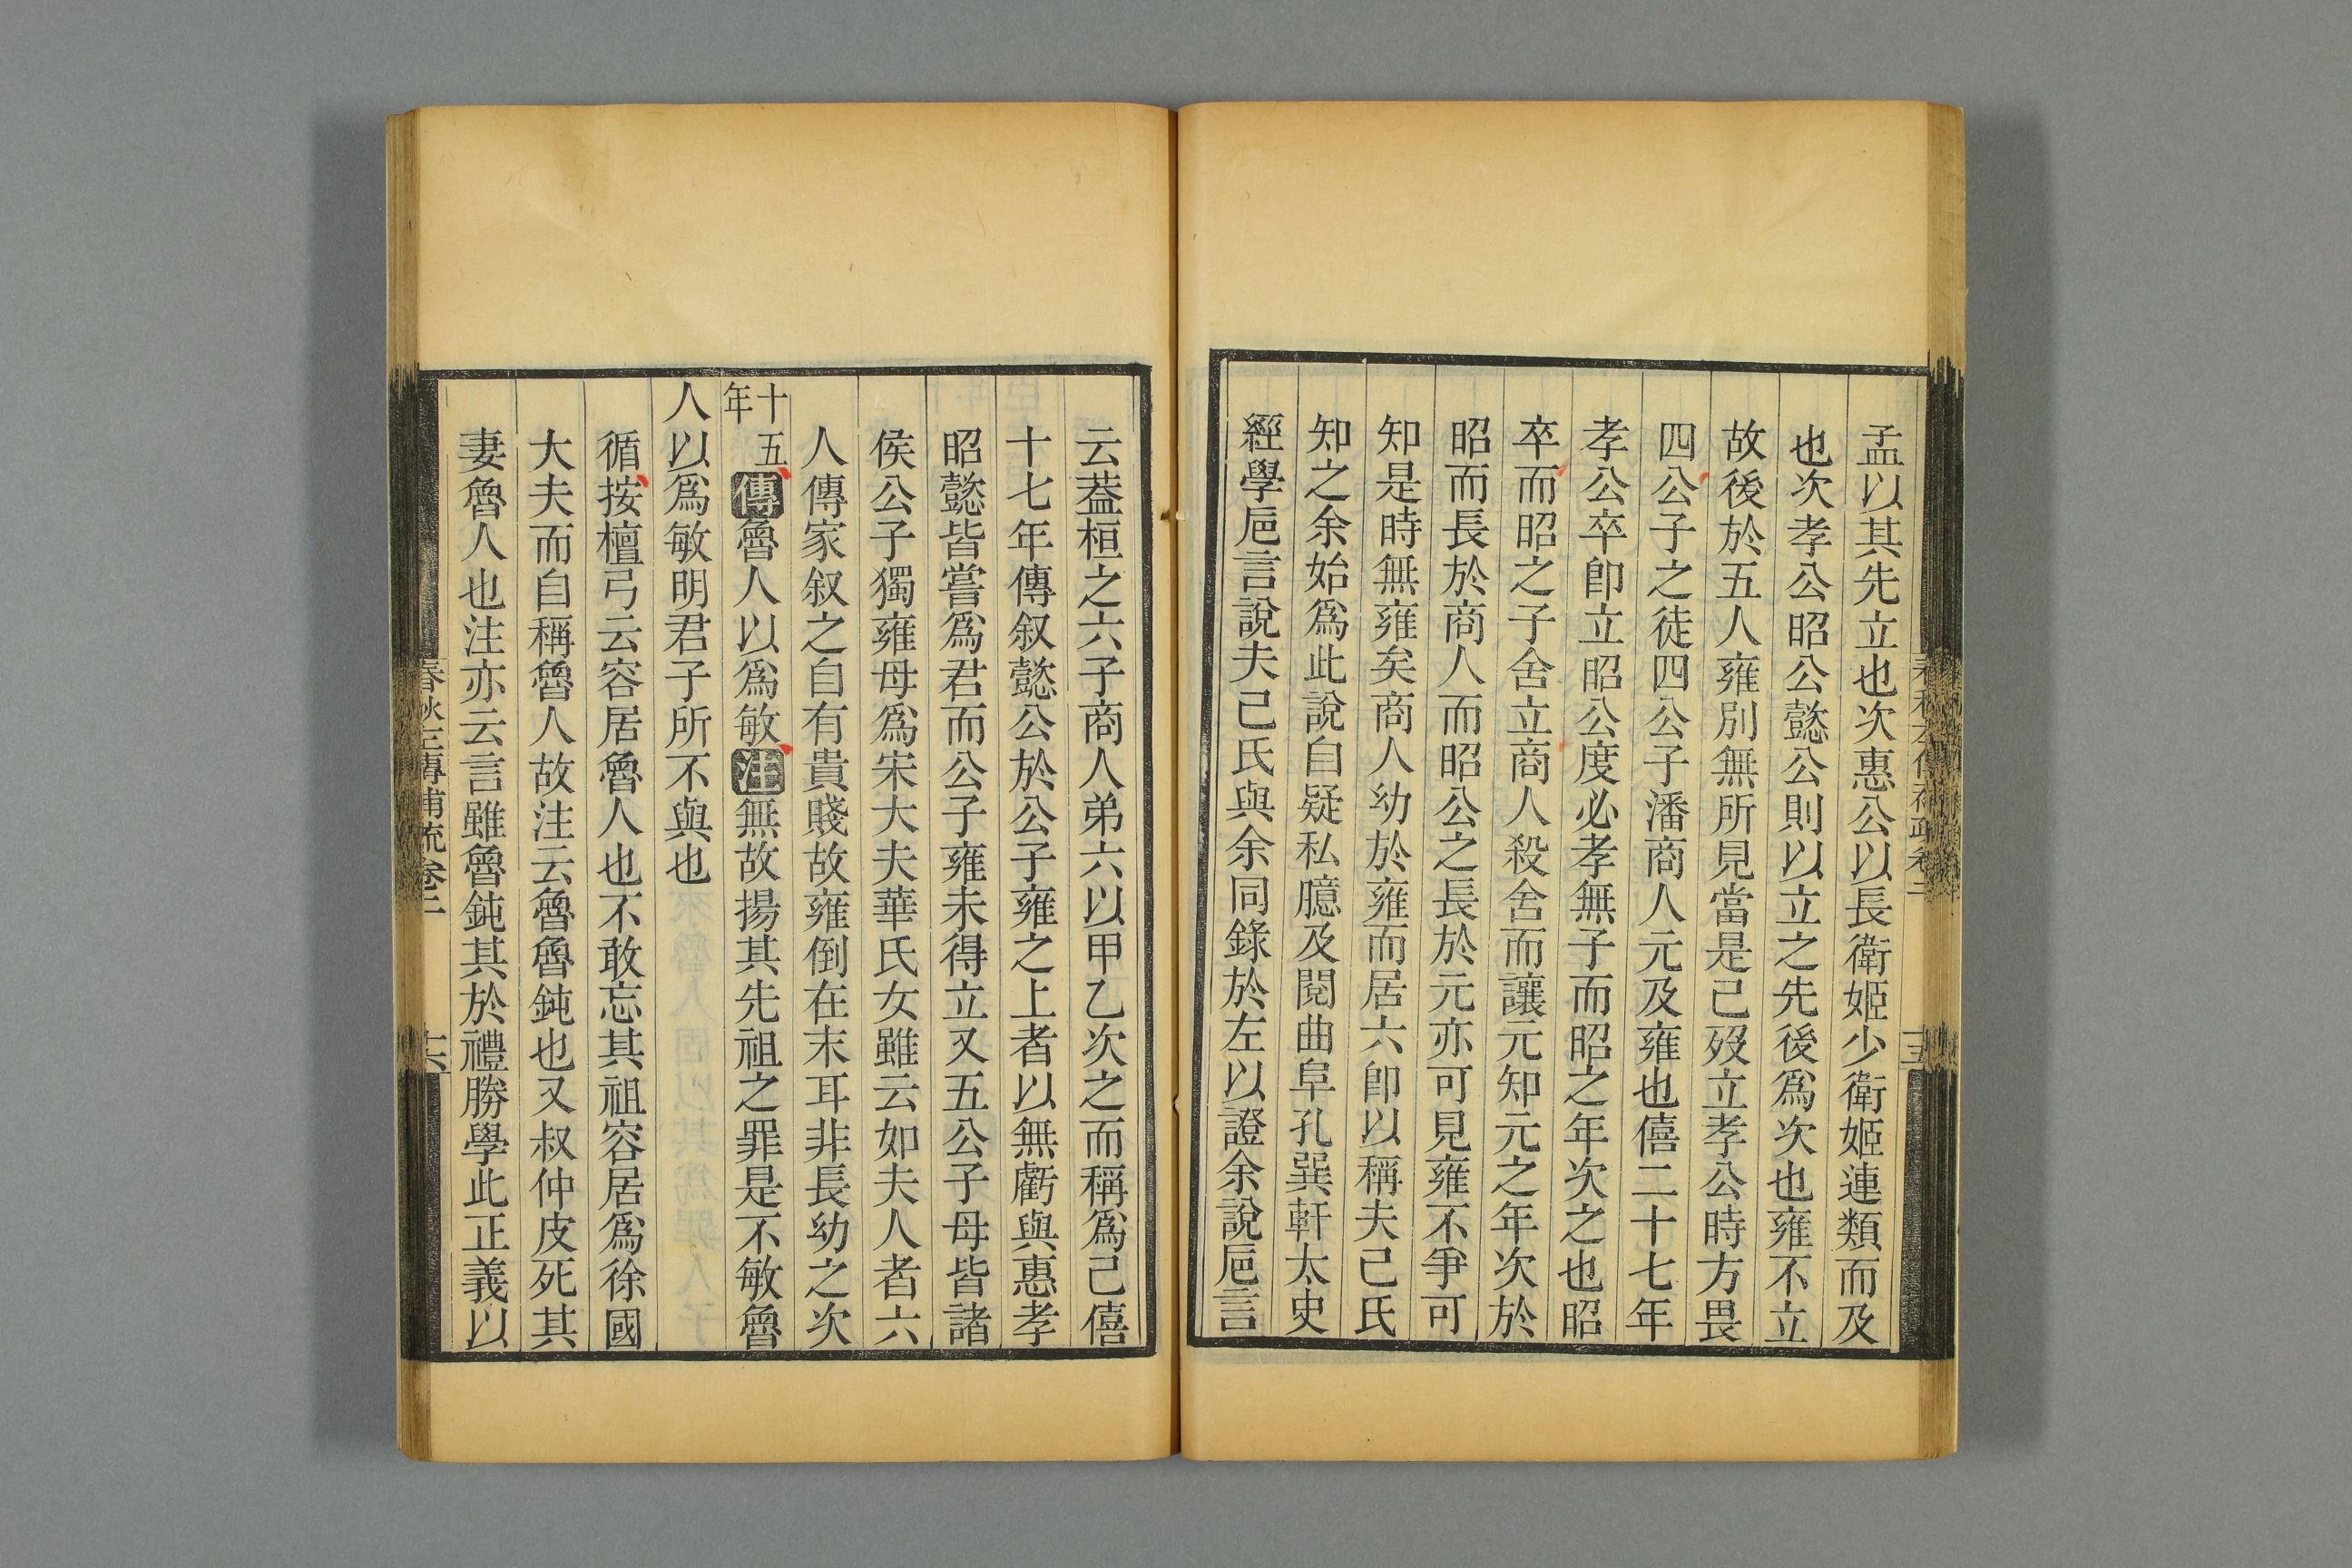 孟以其先立也次惠公以長衛姬少衛姬連類而及
也次孝公昭公懿公則以立之先後爲次也雍不立
故後於五人雍別無所見當是已歿立孝公時方畏
四公子之徒四公子潘商人元及雍也僖二十七年
孝公卒卽立昭公度必孝無子而昭之年次之也昭
卒而昭之子舍立商人殺舍而讓元知元之年次於
昭而長於商人而昭公之長於元亦可見雍不爭可
知是時無雍矣商人幼於雍而居六卽以稱夫己氏
知之余始爲此說自疑私臆及閱曲阜孔巽軒太史
經學卮言說夫己氏與余同錄於左以證余說卮言
云葢桓之六子商人弟六以甲乙次之而稱爲己僖
十七年傳叙懿公於公子雍之上者以無虧與惠孝
昭懿皆嘗爲君而公子雍未得立又五公子母皆諸
侯公子獨雍母爲宋大夫華氏女雖云如夫人者六
人傳家叙之自有貴賤故雍倒在末耳非長幼之次
十五年傳魯人以爲敏注無故揚其先祖之罪是不敏魯
人以爲敏明君子所不與也
循按檀弓云容居魯人也不敢忘其祖容居爲徐國
大夫而自稱魯人故注云魯魯鈍也又叔仲皮死其
妻魯人也注亦云言雖魯鈍其於禮勝學此正義以
春秋左傳補疏卷二
十六